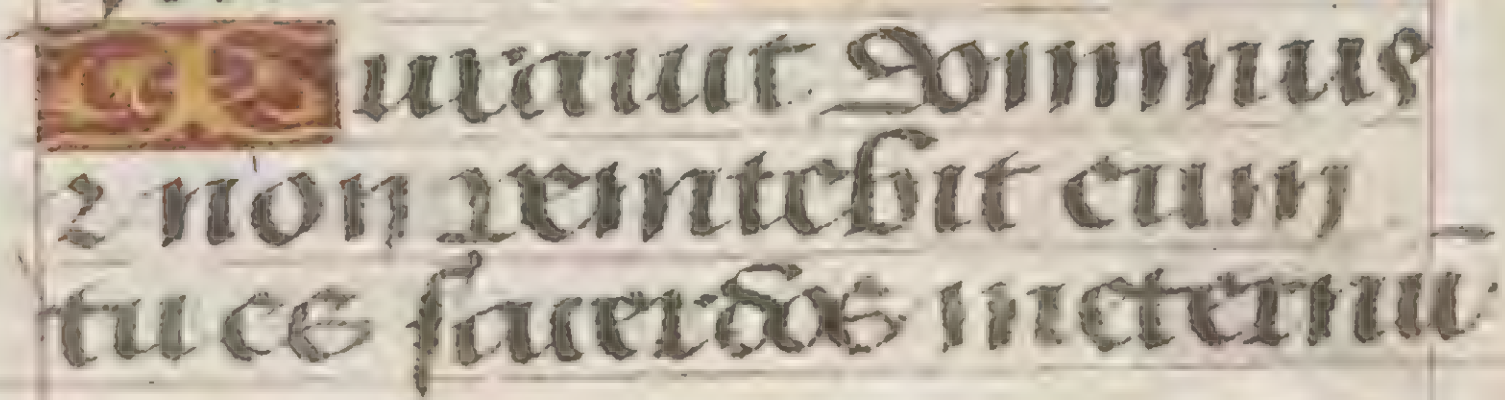 Iurauit dominus
⁊ non penitebit eum
tu es sacerdos ineternū